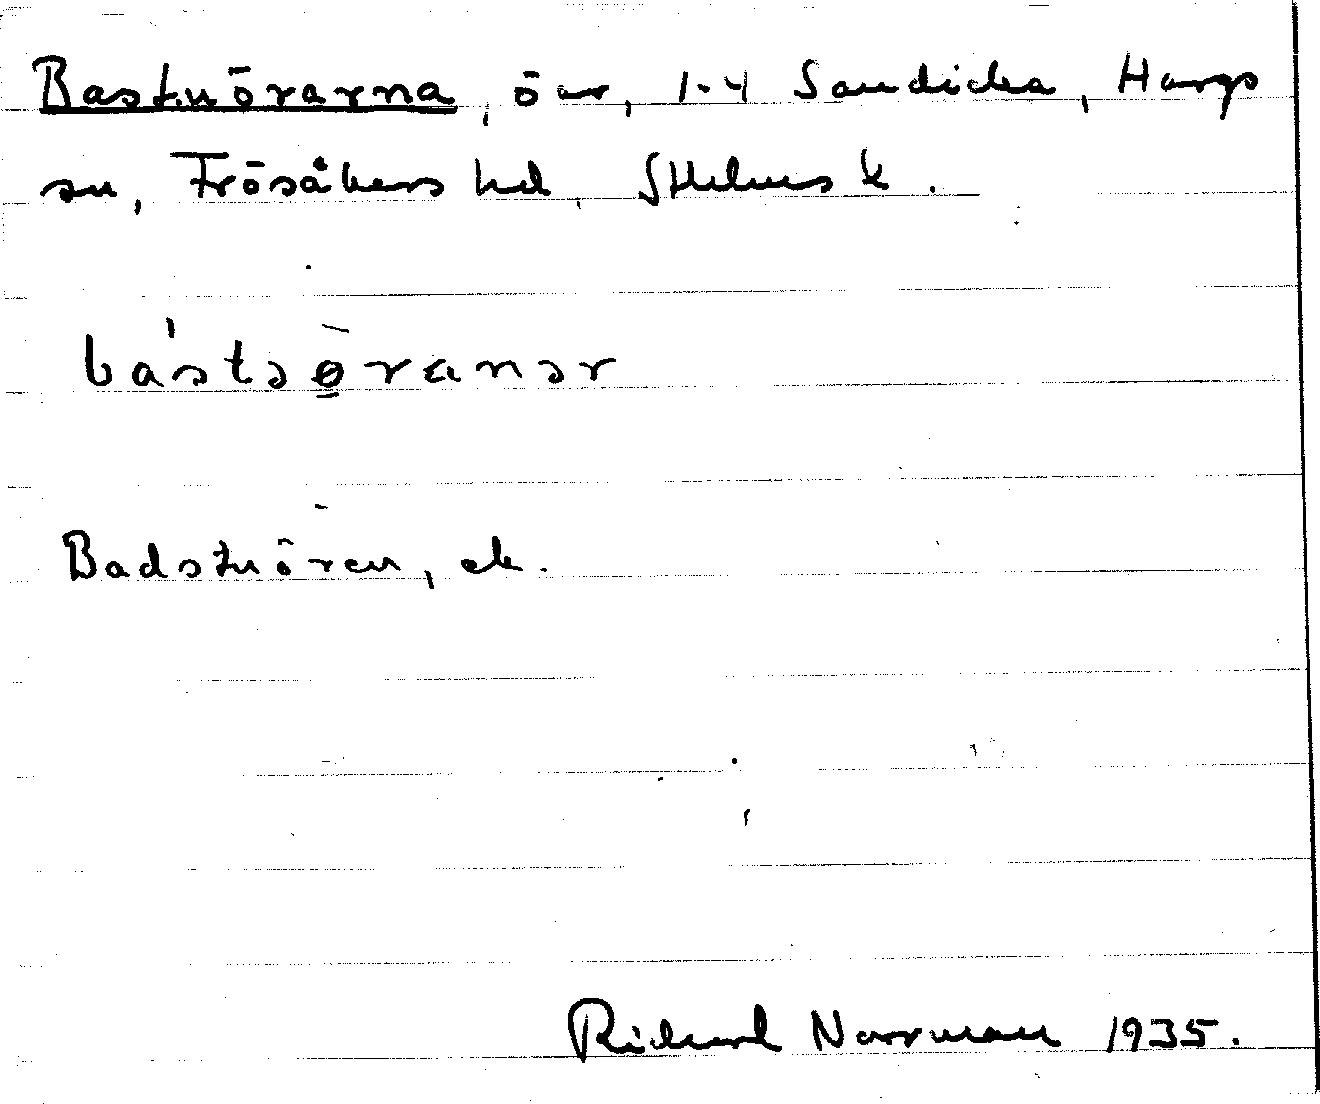 Bastuörarna, öar, 1-4 Sandika, Hargs
sn, Frösåkers hd, Sthlms k.
bástəøranər
Badstuören, ek.
Rickard Norrman 1935.